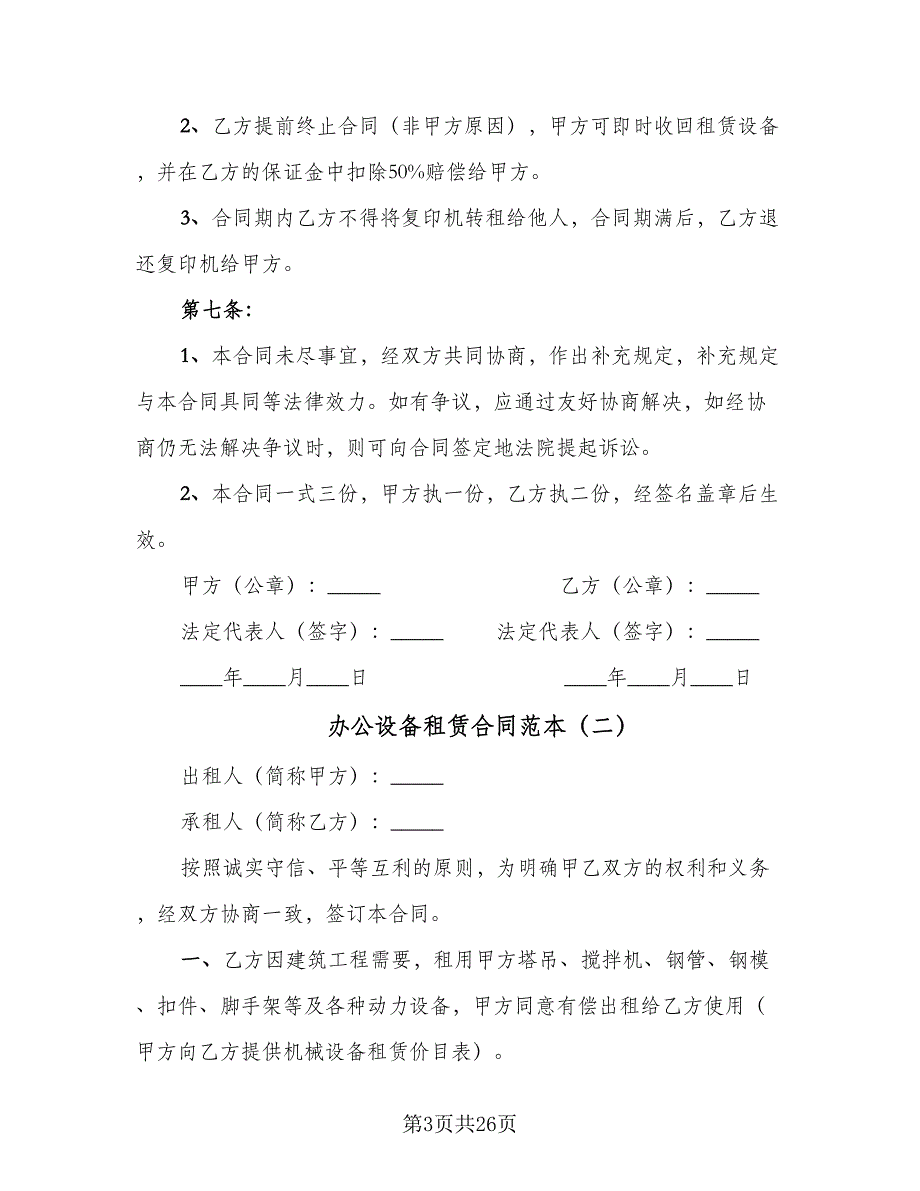 2、乙方提前终止合同（非甲方原因），甲方可即时收回租赁设备
，并在乙方的保证金中扣除50%赔偿给甲方。
3、合同期内乙方不得将复印机转租给他人，合同期满后，乙方退
还复印机给甲方。
第七条：
1、本合同未尽事宜，经双方共同协商，作出补充规定，补充规定
与本合同具同等法律效力。如有争议，应通过友好协商解决，如经协
商仍无法解决争议时，则可向合同签定地法院提起诉讼。
2、本合同一式三份，甲方执一份，乙方执二份，经签名盖章后生
效。
甲方（公章）：_____ 乙方（公章）：_____
法定代表人（签字）：_____ 法定代表人（签字）：_____
____年____月____日 ____年____月____日
办公设备租赁合同范本（二）
出租人（简称甲方）：_____
承租人（简称乙方）：_____
按照诚实守信、平等互利的原则，为明确甲乙双方的权利和义务
，经双方协商一致，签订本合同。
一、乙方因建筑工程需要，租用甲方塔吊、搅拌机、钢管、钢模
、扣件、脚手架等及各种动力设备，甲方同意有偿出租给乙方使用（
甲方向乙方提供机械设备租赁价目表）。
第3页共26页